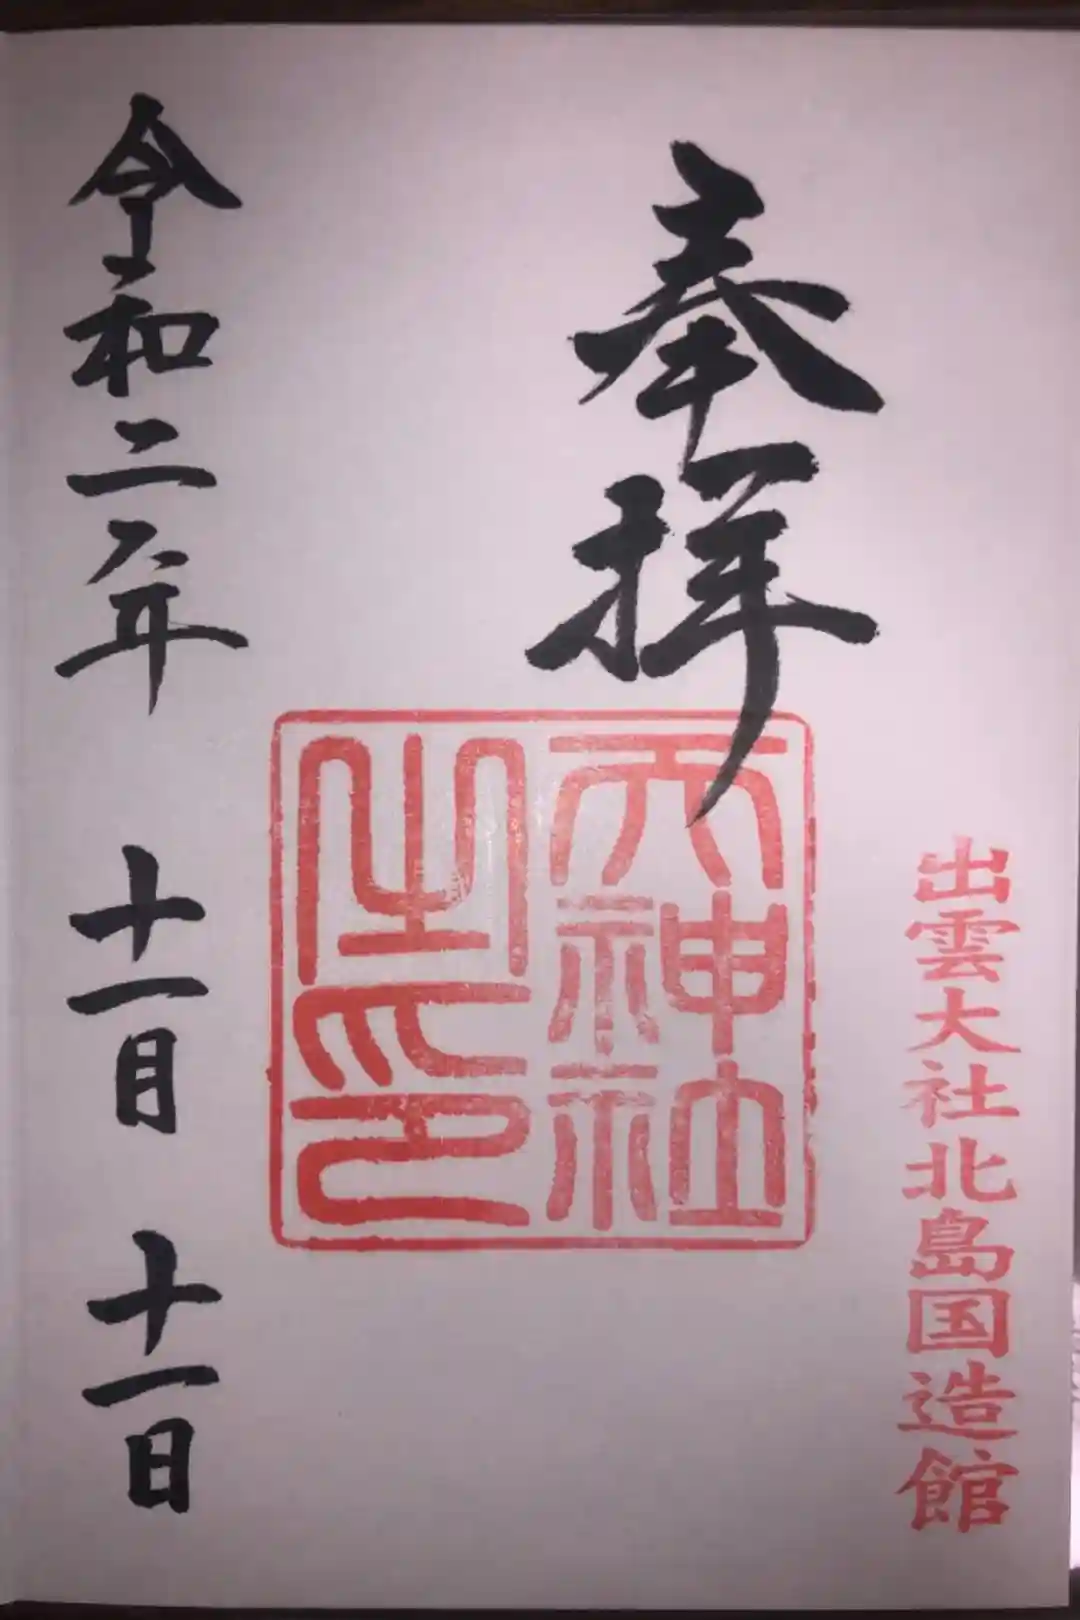 奉拝
出雲大社北島国造館
天神社
之印
令和二年 十一月 十一日